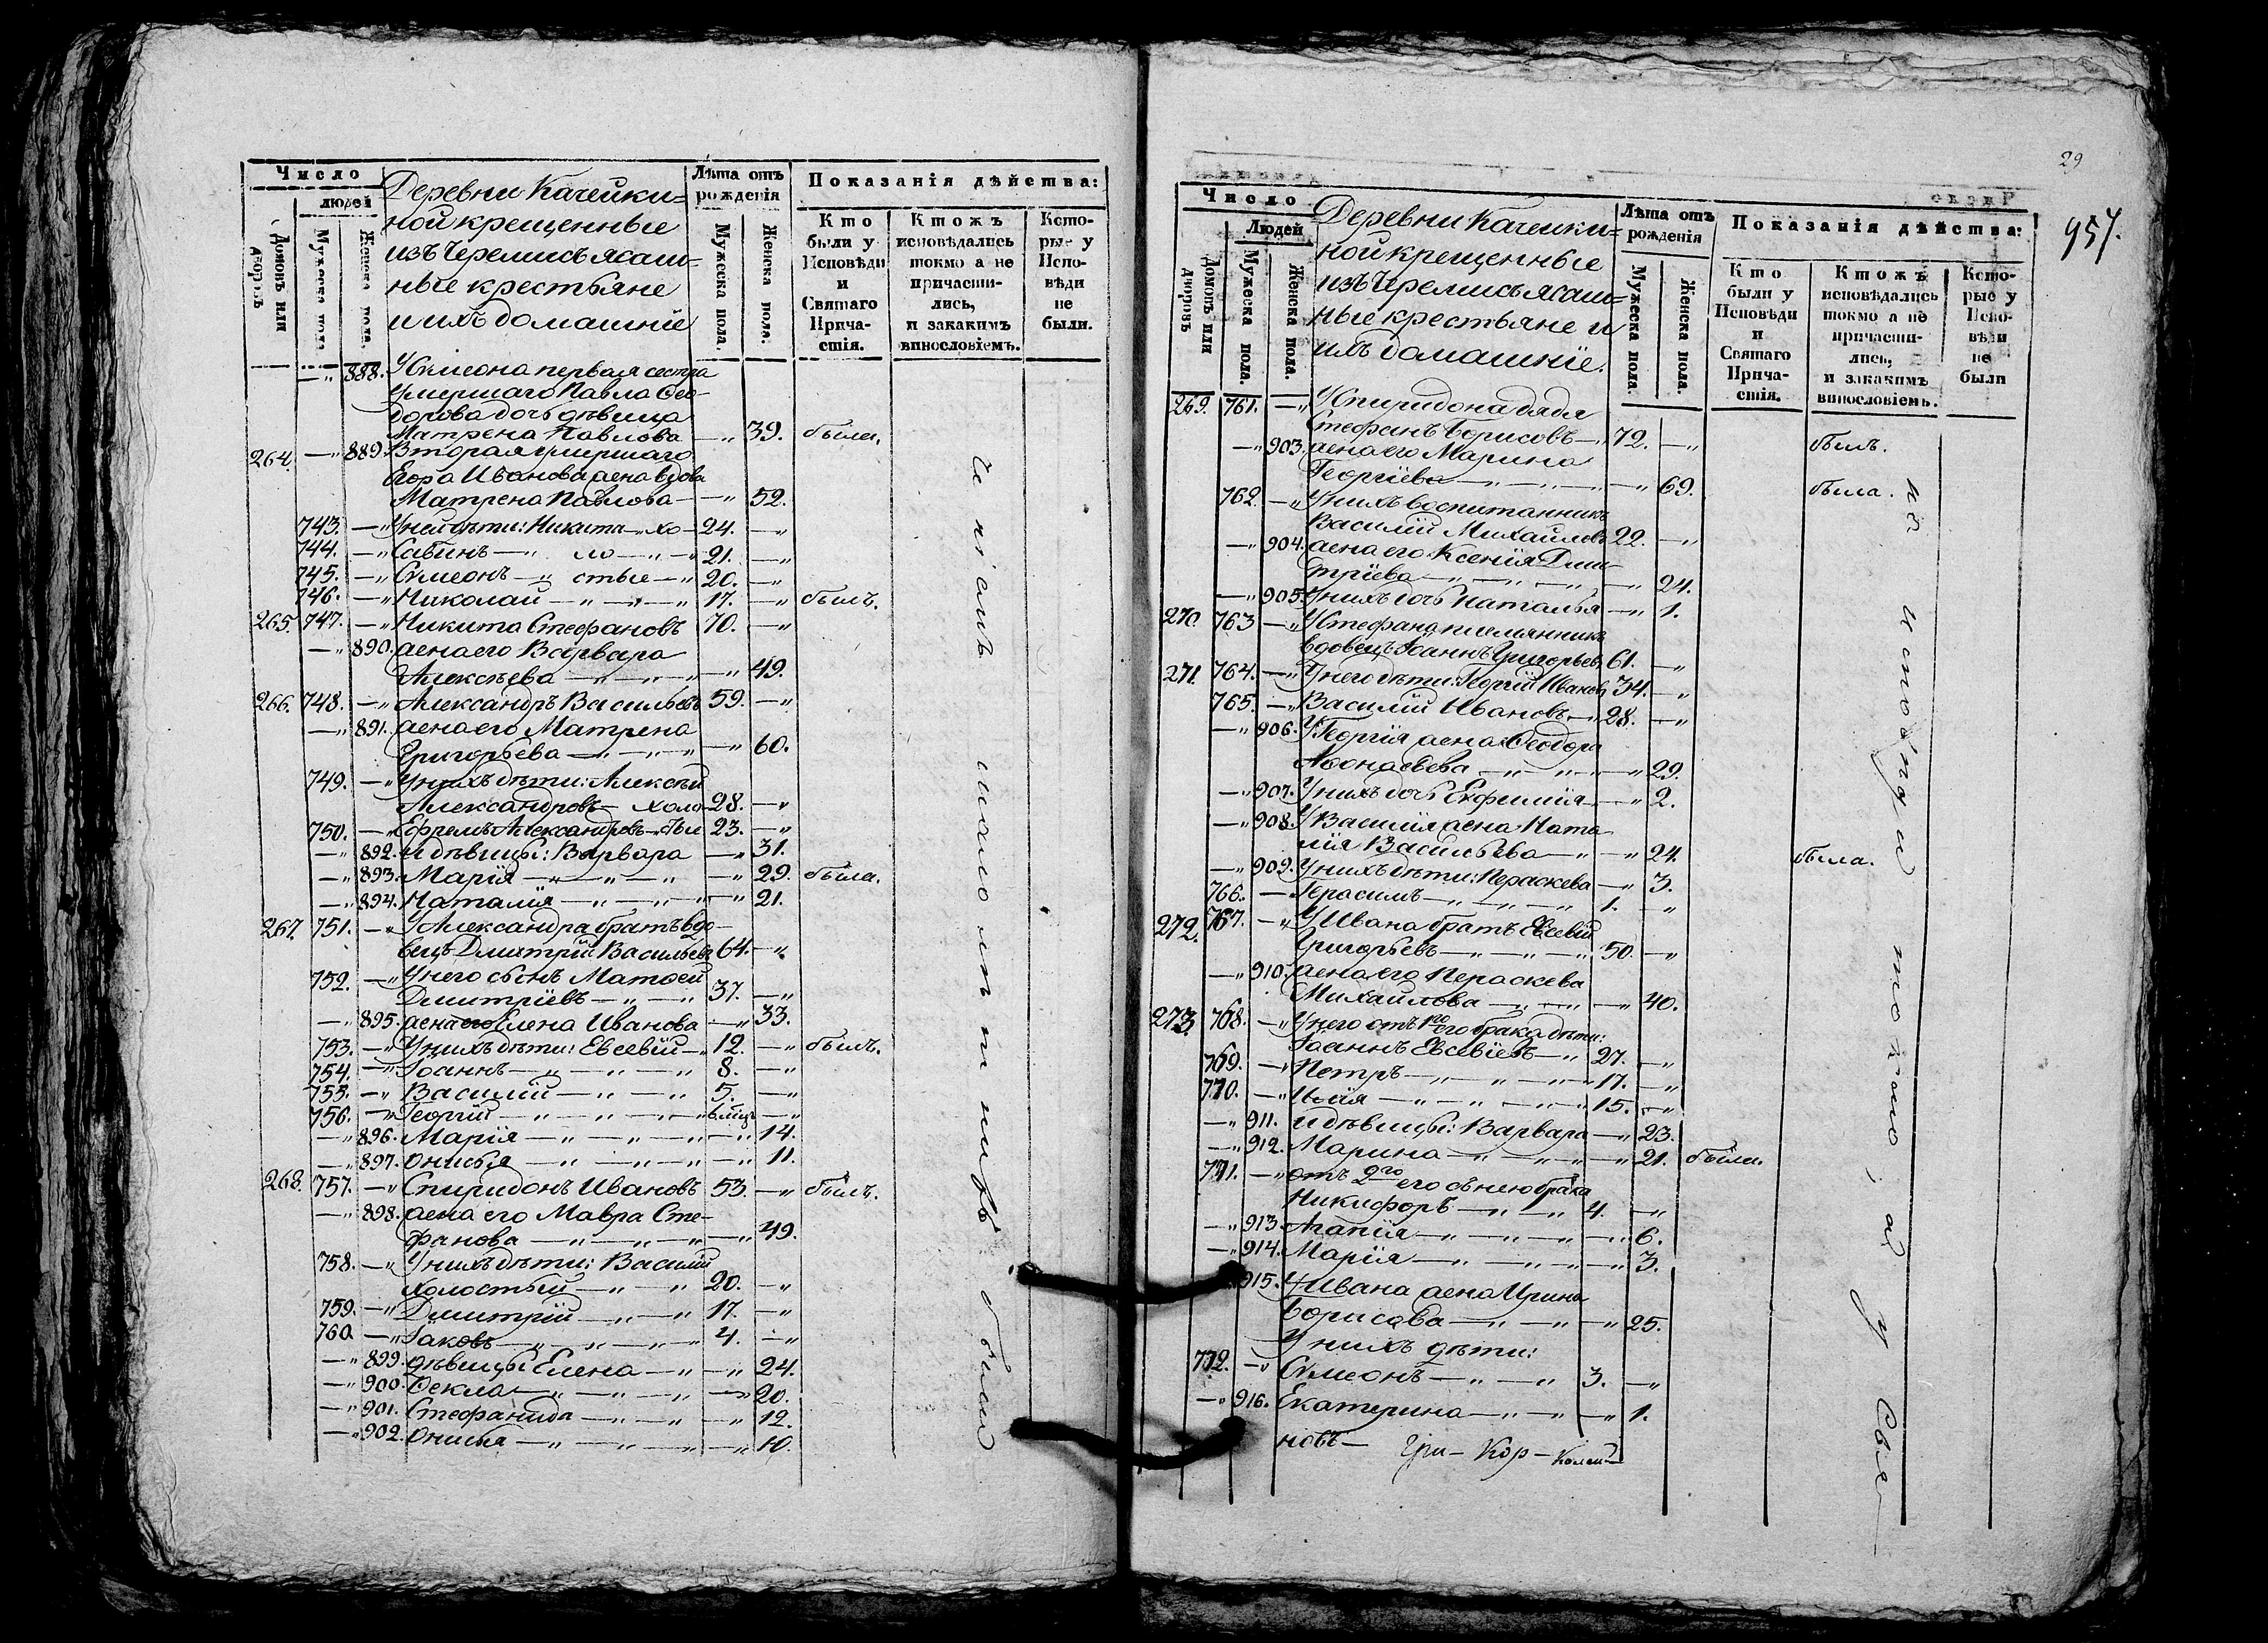 Число
людей
Домовъ или дворовъ
Мужеска пола.
Женска пола.
Деревни Качейки=
ной крещенные
изъ Черемисъ ясаш=
ные крестьяне
и ихъ домашнїе
Лѣта отъ рожденія
Мужеска пола.
Женска пола.
Показанія дѣйства:
Кто были у Исповѣди и Святаго Прича- стія.
Ктожъ исповѣдались токмо а не причасти- лись, и закакимъ винословіемъ.
Кото- рые у Испо- вѣди не были.
—" 888. У Сѵмеона первая сестра
умершаго Павла Фео-
дорова дочь дѣвица
Матрена Павлова —" 39. была.
264. —" 889. Вторая умершаго
Егора Иванова жена вдова
Матрена Павлова — —" 52.
743. —" У ней дѣти: Никита —" хо — 24. —"
744. —" Савинъ —" ло —" —" 21. —"
745. —" Сѵмеонъ —" стые —" 20. —"
746. —" Николай —" —" —" 17. —" былъ.
265. 747. —" Никита Стефановъ 70. —"
—" 890. жена его Варвара
Алексѣева —" —" —" —" 49.
266. 748. —" Александръ Васильевъ 59. —"
—" 891. жена его Матрена
Григорьева —" —" —" —" 60.
749. —" У нихъ дѣти: Алексѣй
Александровъ — холо- 28. —"
750. —" Ефремъ Александровъ — стые 23. —"
—" 892. и дѣвицы: Варвара —" 31.
—" 893. Марїя —" —" —" —" 29. была.
—" 894. Наталїя —" —" —" —" 21.
267. 751. —" У Александра братъ вдо-
вецъ Дмитрїй Васильевъ 64. —"
752. —" У него сынъ Матѳей
Дмитрїевъ —" —" 37. —"
—" 895. жена его Елена Иванова —" 33.
753. —" У нихъ дѣти: Евсевїй —" 12. —" былъ.
754. —" Іоаннъ —" —" —" 8. —"
755. —" Василїй —" —" 5. —"
756. —" Георгїй —" —" —" 6 мцъ —"
—" 896. Марїя —" —" —" —" 14.
—" 897. Онисья —" —" —" —" 11.
268. 757. —" Спиридонъ Ивановъ 53. —" былъ.
—" 898. жена его Мавра Сте-
фанова —" —" —" —" 49.
758. —" У нихъ дѣти: Василїй
холостый —" —" 20. —"
759. —" Димитрїй —" —" 17. —"
760. —" Іаковъ —" —" —" 4. —"
—" 899. дѣвицы Елена —" —" 24.
—" 900. Ѳекла —" —" —" —" 20.
—" 901. Стефанида —" —" —" 12.
—" 902. Онисья —" —" —" —" 10.
были
29
957.
Число
Людей
Домовъ или дворовъ
Мужеска пола.
Женска пола.
Деревни Качейки=
ной крещенные
изъ Черемисъ ясаш=
ные крестьяне и
ихъ домашнїе.
Лѣта отъ рожденія
Мужеска пола.
Женска пола.
Показанія дѣйства:
Кто были у Исповѣди и Святаго Прича- стія.
Ктожъ исповѣдались токмо а не причасти- лись, и закакимъ винословіемъ.
Кото- рые у Испо- вѣди не были
269. 761. —" У Спиридона дядя
Стефанъ Борисовъ —" 72. —" былъ.
—" 903. жена его Марина
Георгїева —" —" —" —" 69. была.
762. —" У нихъ воспитанникъ
Василїй Михайловъ 22. —"
—" 904. жена его Ксенїя Дми-
трїева —" —" —" —" 24.
—" 905. У нихъ дочь Наталья —" 1.
270. 763 —" У Стефана племянникъ
вдовецъ Іоаннъ Григорьевъ 61. —"
271. 764. —" У него дѣти: Георгїй Ивановъ 34. —"
765. —" Василїй Ивановъ —" 28. —"
—" 906. У Георгїя жена Ѳеодора
Аѳонасьева —" —" —" 29.
—" 907. У нихъ дочь Евфимїя —" 2.
—" 908. У Василїя жена Ната-
лїя Васильева —" —" 24. была.
—" 909. У нихъ дѣти: Пераскева —" 3.
766. —" Герасимъ —" —" —" 1. —"
272. 767. —" У Ивана братъ Евсевїй
Григорьевъ —" —" —" 50. —"
—" 910. жена его Пераскева
Михайлова —" —" —" 40.
273. 768. —" У него отъ 1го его брака дѣти:
Іоаннъ Евсевїевъ —" 27. —"
769. —" Петръ —" —" —" 17. —"
770. —" Илїя —" —" —" 15. —"
—" 911. и дѣвицы: Варвара —" 23.
—" 912. Марина —" —" —" 21. была.
771. —" отъ 2го его съ нею брака
Никифоръ —" —" 4. —"
—" 913. Агапїя —" —" —" —" 6.
—" 914. Марїя —" —" —" —" 3.
915. У Ивана жена Ирина
Борисова —" —" —" 25.
У нихъ дѣти:
772. —" Сѵмеонъ —" —" 3. —"
—" 916. Екатерина —" —" —" 1.
новъ — Гри — Кор —
исповѣди токмо, а у Свя—